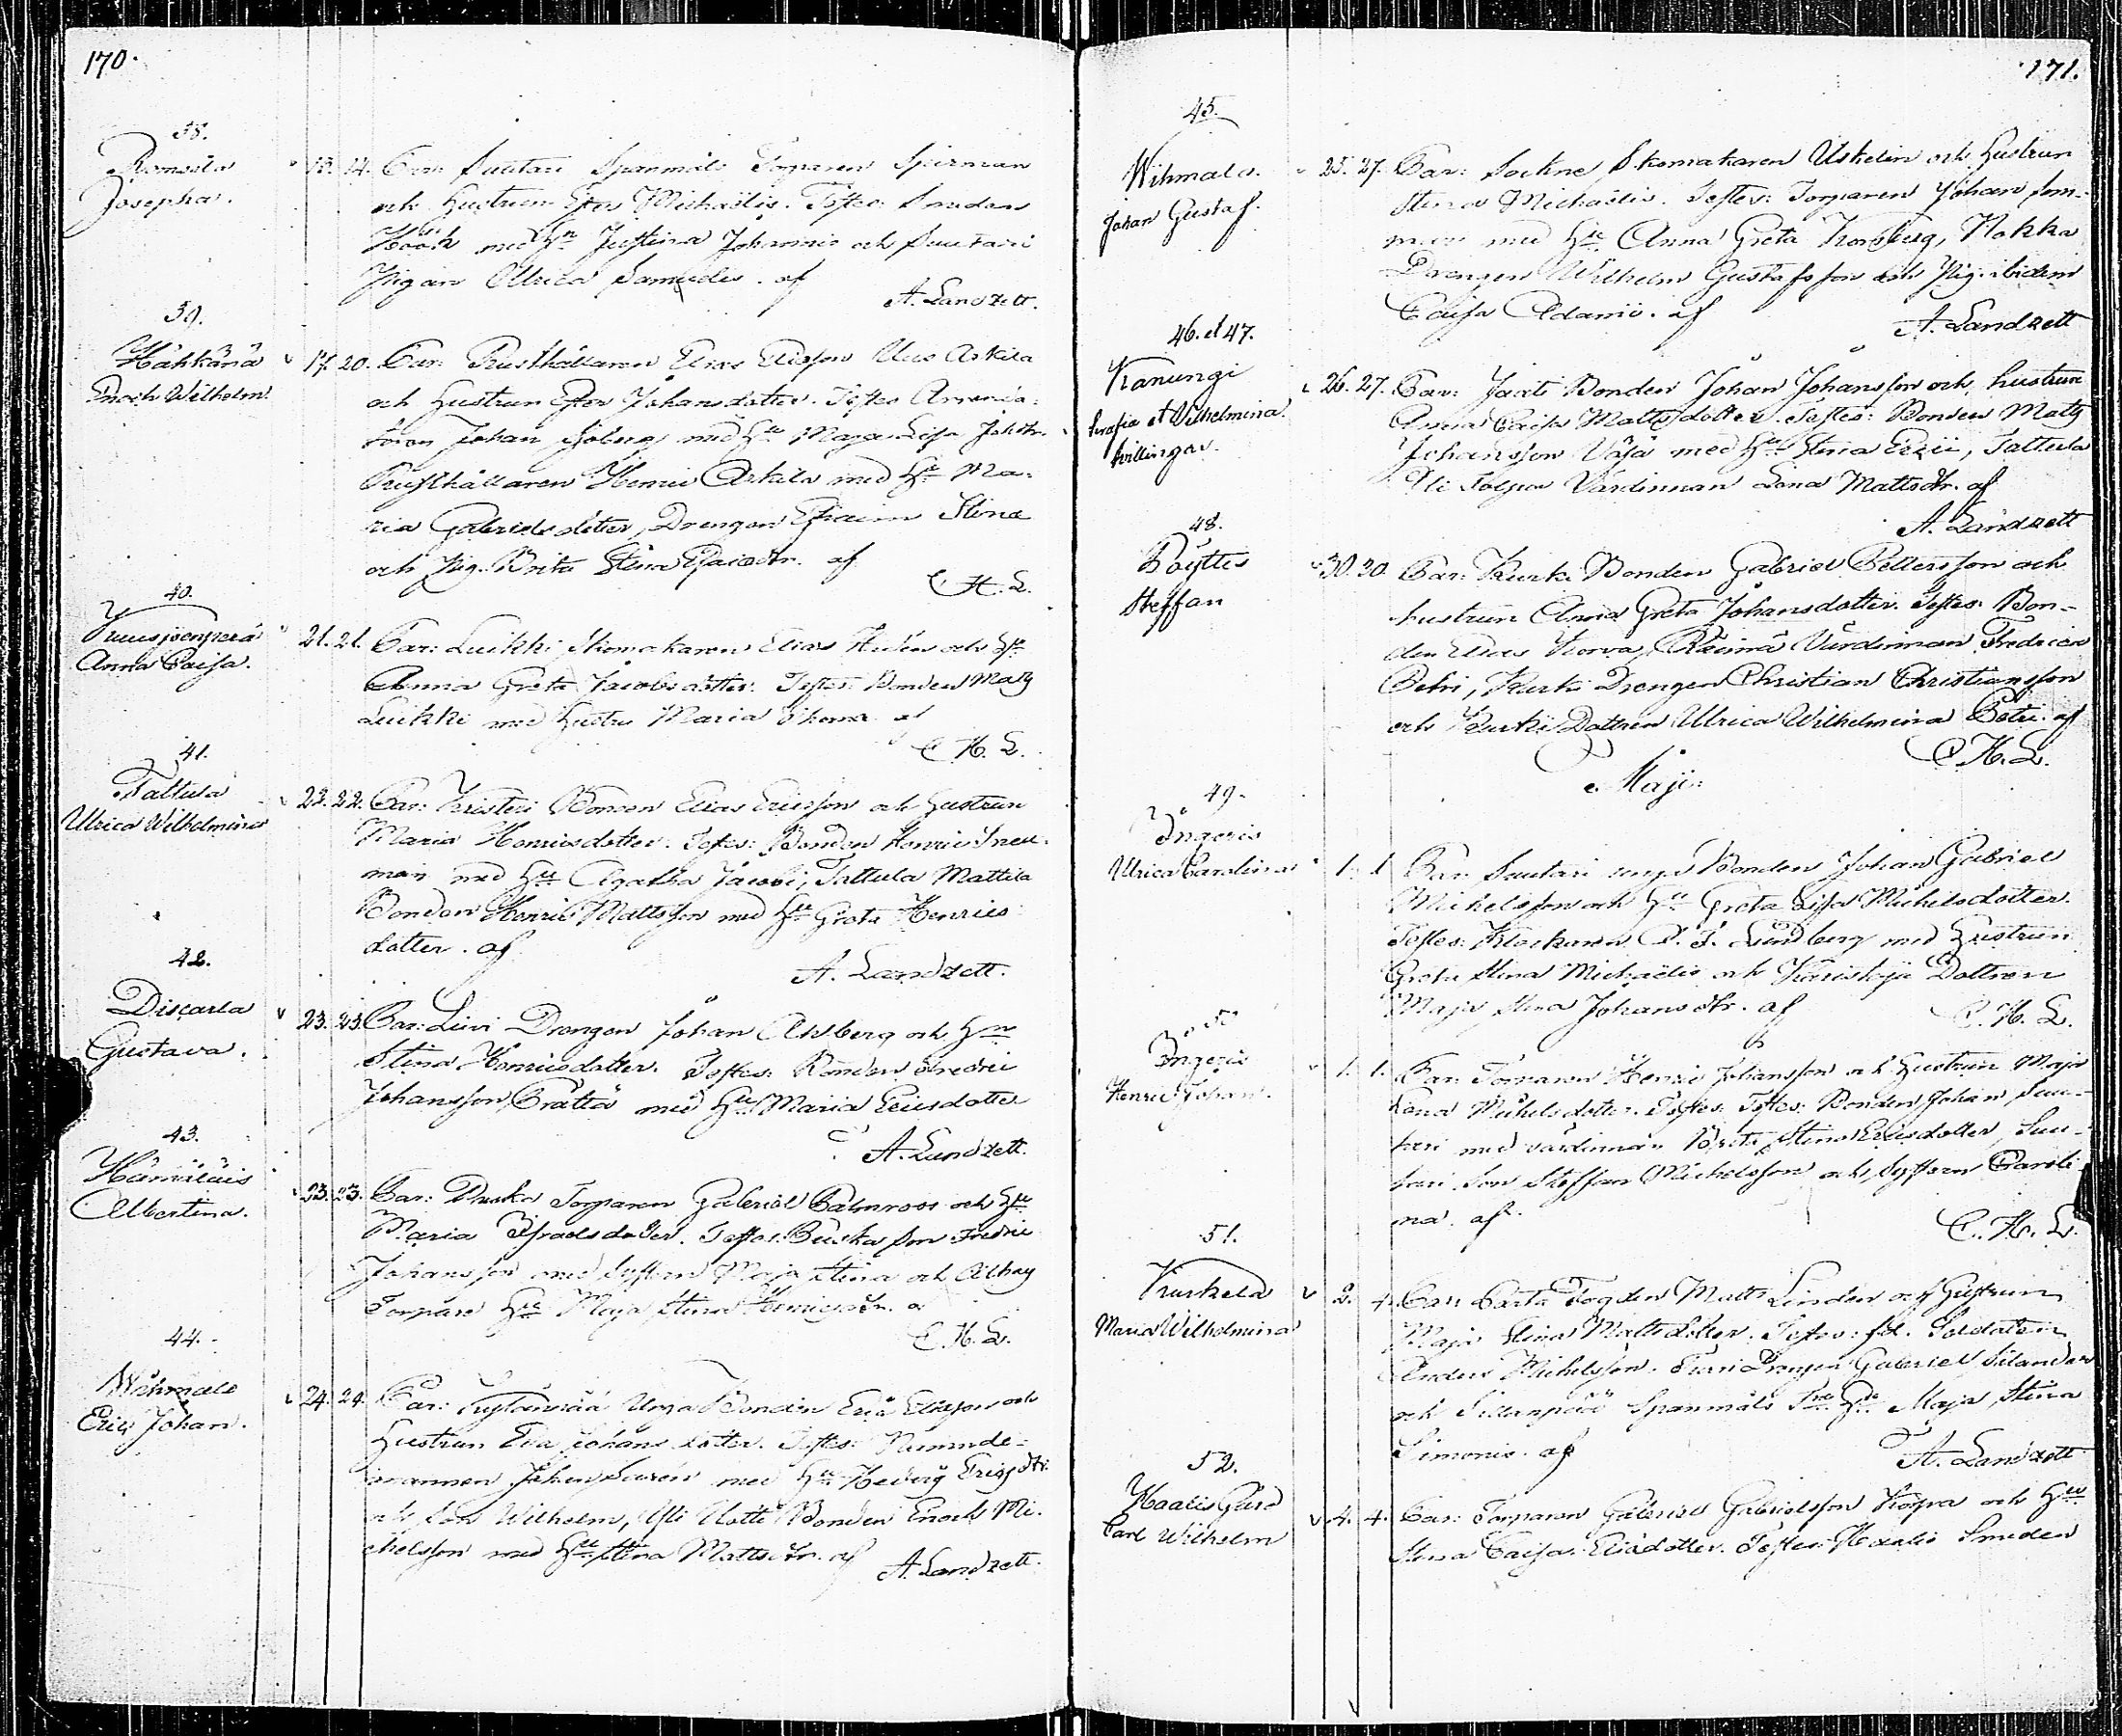 170.
38.
Romsila
Josepha.
13. 14. Par: Suutari Spanmåls Torparen Spirman
och Hustrun Ester Michaëlis. Testes: Smeden
Höök med Hu Justina Johannis och Suutari
Pigan Ulrica Samuelis. af
A. Landzett.
39.
Häkkänä
Enoch Wilhelm.
17. 20. Par: Rusthållaren Elias Eliasson Uus Arkila
och Hustrun Ester Johansdotter. Testes
Johan Sjöberg med Hu Maja Lisa Joh.dr.
Rusthållaren Henric Arkila med Hu Ma-
ria Gabrielsdotter, Drengen Efraim Stina
och Pig. Brita Stina af
C. H. L.
40.
Anna Caisa.
21. 21. Par: Luikki Skomakaren Elias och Hu
Anna Greta Jacobsdotter. Testes: Bonden Mats
Luikki med Hustru Maria Thomæ af
C. H. L.
41.
Tattula
Ulrica Wilhelmina
22. 22. Par: Kristeri Bonden Elias Ericsson och Hustrun
Maria Henricsdotter. Testes: Bonden Henric Inn-
man med Hu Agatha Jacobi, Tattula Mattila
Bonden Henric Mattsson med Hu Greta Henrics
dotter. af
A. Landzett.
42.
Discarla
Gustava.
23. 23. Par: Liivi Drengen Johan Ahlberg och Hu
Stina Henricsdotter. Testes: Bonden Fredric
Johansson Prättä med Hu Maria Ericsdotter
A. Landzett.
43.
Hämäläis
Albertina.
23. 23. Par: Puska Torparen Gabriel Palmroos och Hu
Maria Israelsdotter. Testes: Puska Son Fredric
Johansson med Systern Maja Stina och
Torpare Hu Maja Stina Henricsdr. af
C. H. L.
44.
Wihmalo
Eric Johan.
24. 24. Par: Unga Bonden Eric Ericsson och
Hustrun Eva Johansdotter. Testes: Nämnde-
mannen Johan med Hu Hedvig Ericsdr.
och Son Wilhelm, Yli Uotti Bonden Enoch Mi-
chelsson med Hu Stina Mattsdr. af A. Landzett.
171.
45.
Wihmalo.
Johan Gustaf.
25. 27. Par: Sockne Skomakaren Uskelin och Hustrun
Stina Michaëlis. Testes: Torparen Johan Som-
man med Hu Anna Greta Kornberg, Nokka
Drengen Wilhelm Gustafsson och Pig. ibidem
Caisa Adami. af
A. Landzett
46. et 47.
Kanungi
Serafia et Wilhelmina
tvillingar.
26. 27. Par: Jaati Bonden Johan Johansson och hustrun
Anna Caisa Mattsdotter. Testes: Bonden Mats
Johansson Väjä med Hu Stina Erici, Tattula
Yli Tolpo Värdinnan Lena Mattsdr. af
A. Landzett
48.
Pöytlis
Steffan
30. 30. Par: Kurki Bonden Gabriel Pettersson och
hustrun Anna Greta Johansdotter. Testes: Bon-
den Elias Korva, Räimä Värdinnan Fredrica
Petri, Kurki Drengen Christian Christiansson
och Kurki Dottren Ulrica Wilhelmina Petri. af
C. H. L.
Maji:
49.
Ingeris
Ulrica Carolina
1. 1. Par: Suutari unga Bonden Johan Gabriel
Michelsson och Hu Greta Lisa Michelsdotter.
Testes: Klockaren C. J. Lundberg med Hustrun
Greta Stina Michaëlis och Dottren
Maja Stina Johansdr. af
C. H. L.
50.
Ingeris
Henric Johan.
1. 1. Par: Torparen Henric Johansson och Hustrun Maja
Lena Michelsdotter. Testes: Testes: Bonden Johan Suu-
tari med värdinnan Brita Stina Ericsdotter, Suu-
tari Son Steffan Michelsson och Systern Caroli
na. af.
C. H. L.
51.
Kurkela
Maria Wilhelmina
2. 4. Par: Fogden Matts Linden och Hustrun
Maja Stina Mattsdotter. Testes: fd. Soldaten
Anders Michelsson. Drengen Gabriel Silander
och Sillanpää Spanmåls Hu Maja Stina
Simonis. af
A. Landzett
52.
Haalis Gård
Carl Wilhelm
4. 4. Par: Torparen Gabriel Gabrielsson Korpa och Hu
Stina Caisa Eliædotter. Testes: Haalis Smeden